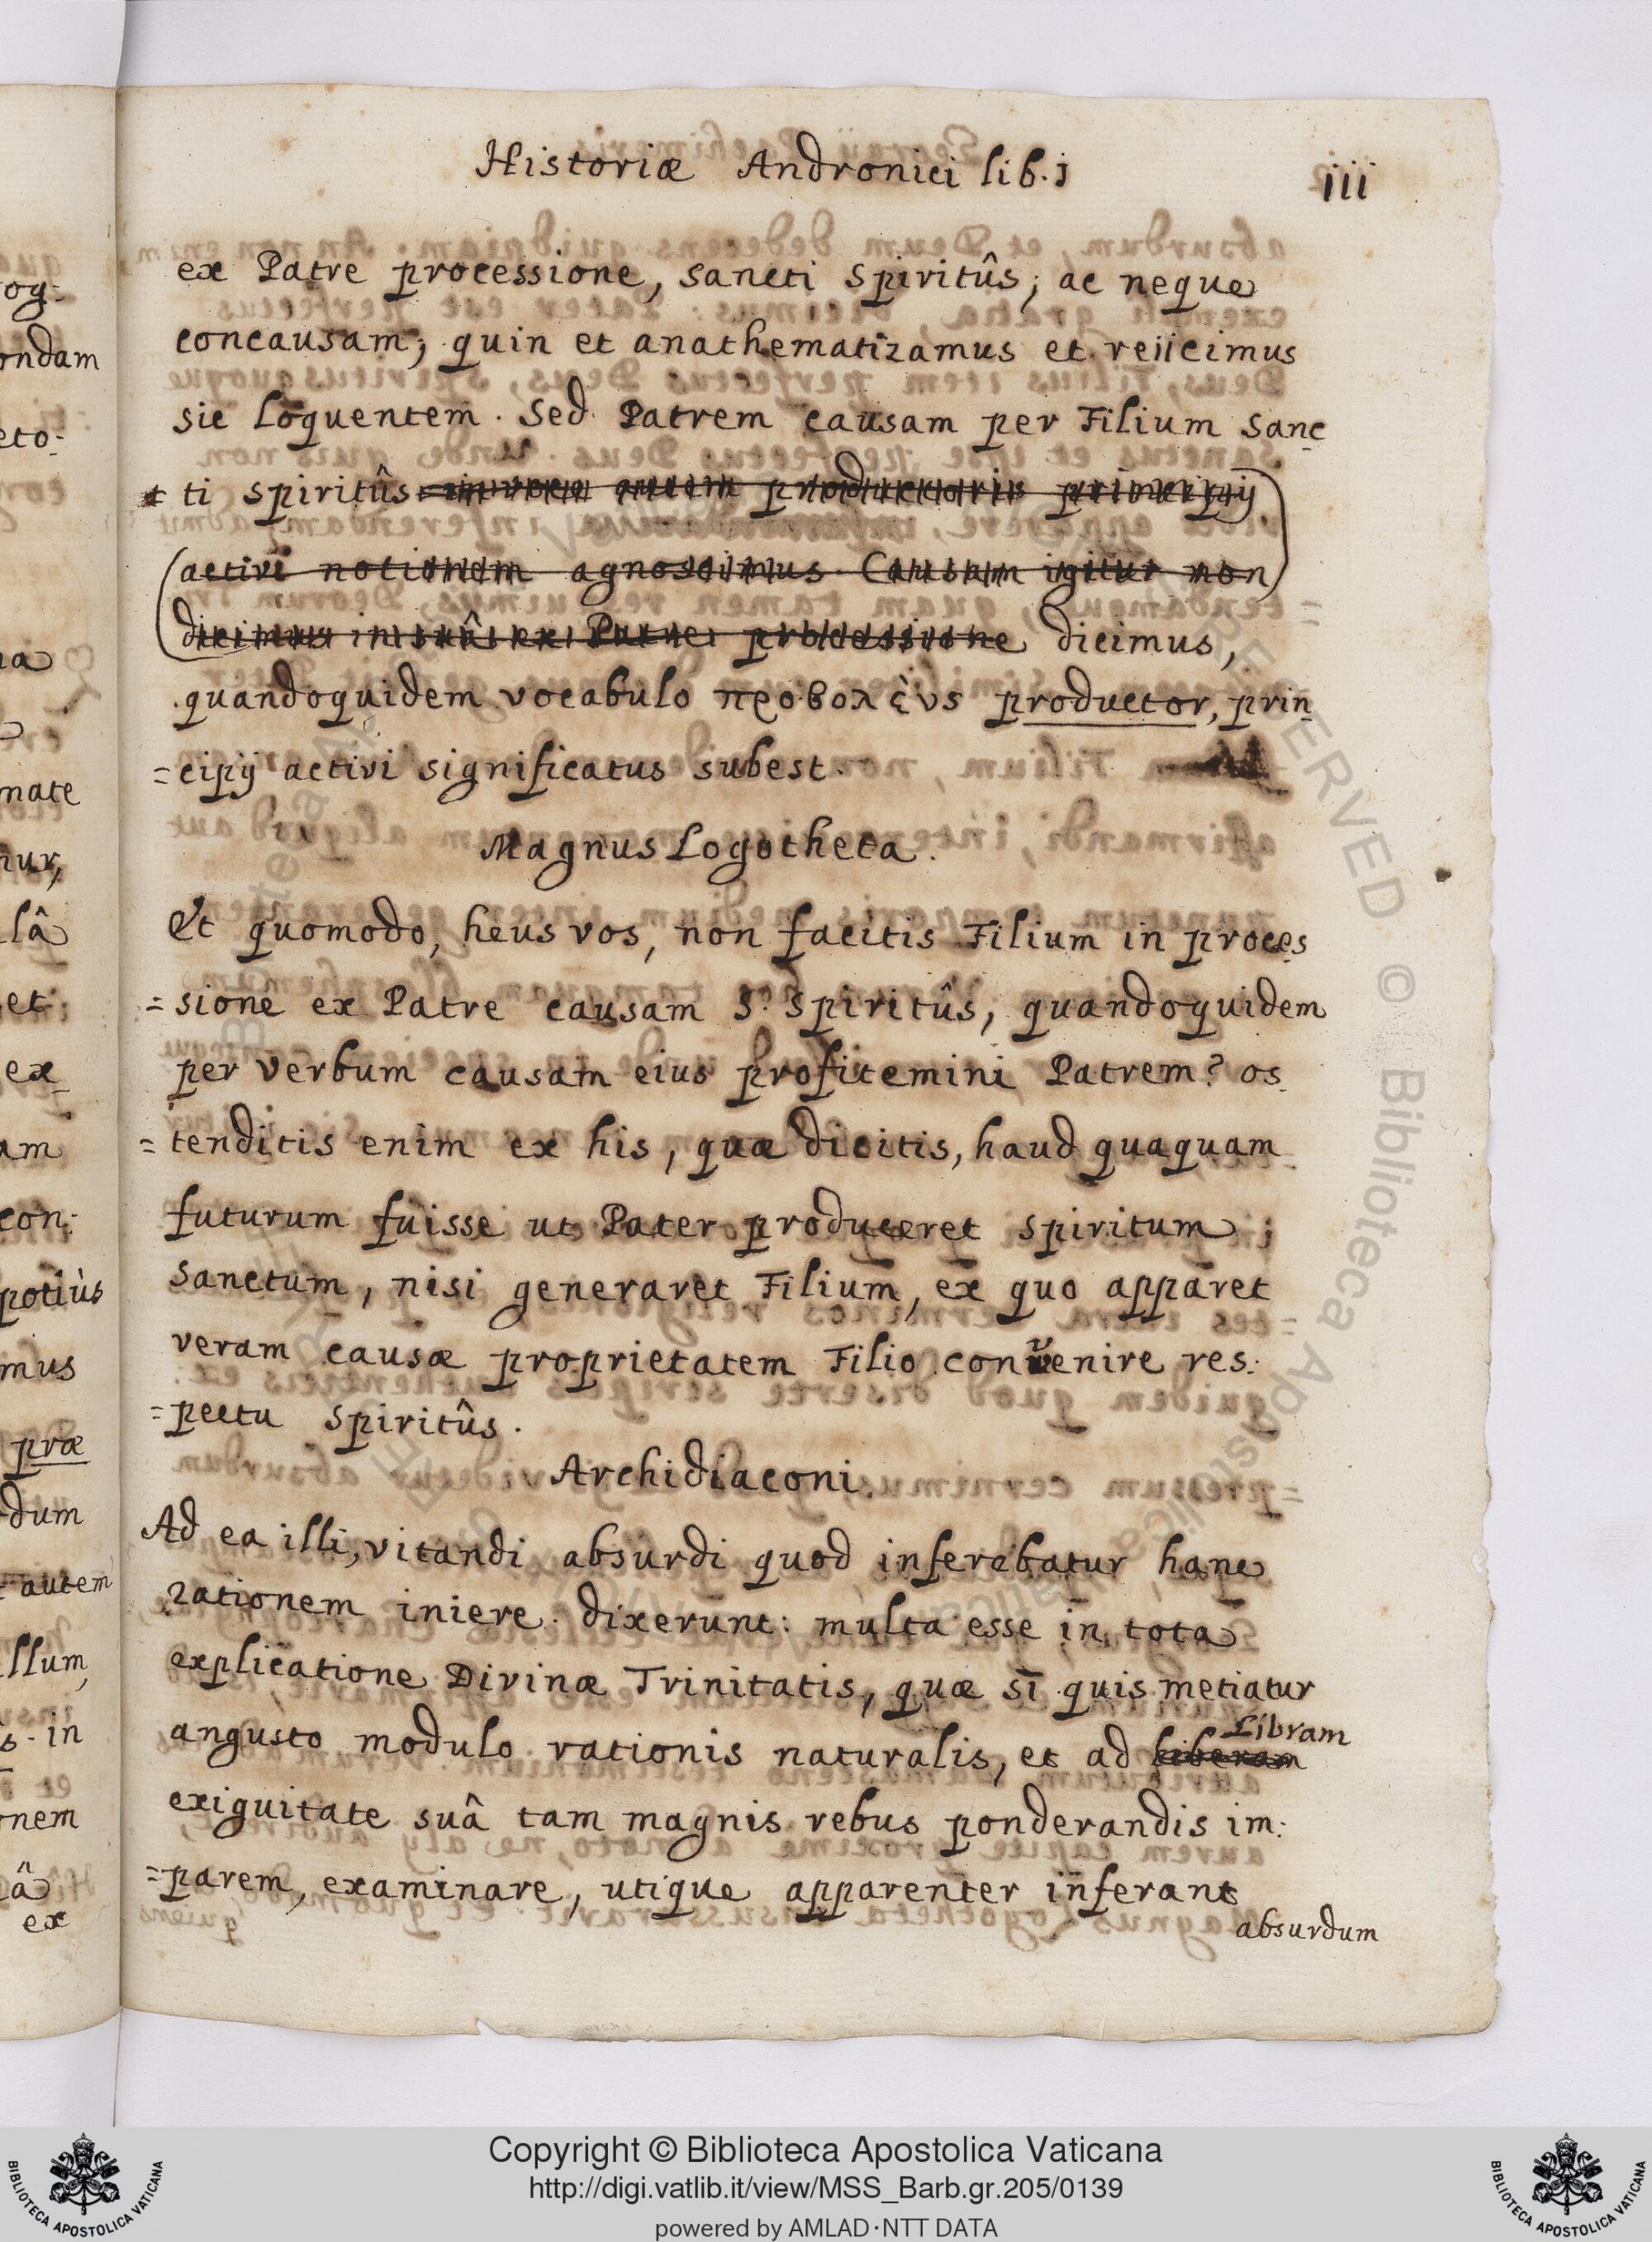 Historiæ Andronici lib. j
iii
ex Patre processione, sancti spiritûs; ac neque
concausam; quin et anathematizamus et reiicimus
sic loquentem. Sed Patrem causam per Filium sanc
ti spiritûs productoris principij
activi notionem agnoscimus. Causam igitur non
dicimus ex Patre processione dicimus,
quandoquidem vocabulo προβολεὺς productor, prin
=cipij activi significatus subest.
Magnus Logotheta.
Et quomodo, heus vos, non facitis Filium in proces
=sione ex Patre causam S. spiritûs, quandoquidem
per verbum causam eius profitemini Patrem? os
=tenditis enim ex his, quæ dicitis, haud quaquam
futurum fuisse ut Pater produceret spiritum
sanctum, nisi generaret Filium, ex quo apparet
veram causæ proprietatem Filio convenire res:
=pectu spiritûs.
Archidiaconi.
Ad ea illi, vitandi absurdi quod inferebatur hanc
rationem iniere. dixerunt: multa esse in tota
explicatione Divinæ Trinitatis, quæ si quis metiatur
angusto modulo rationis naturalis, et ad liberam Libram
exiguitate suâ tam magnis rebus ponderandis im:
=parem, examinare, utique apparenter inferant
absurdum
og:
ondam
cto:
na
mate
nur,
lâ
et
ex
am
con:
potiùs
mus
præ
dum
autem
llum,
s. in
nem
â
ex
Copyright © Biblioteca Apostolica Vaticana
http://digi.vatlib.it/view/MSS_Barb.gr.205/0139
powered by AMLAD·NTT DATA
BIBLIOTECA APOSTOLICA VATICANA
BIBLIOTECA APOSTOLICA VATICANA